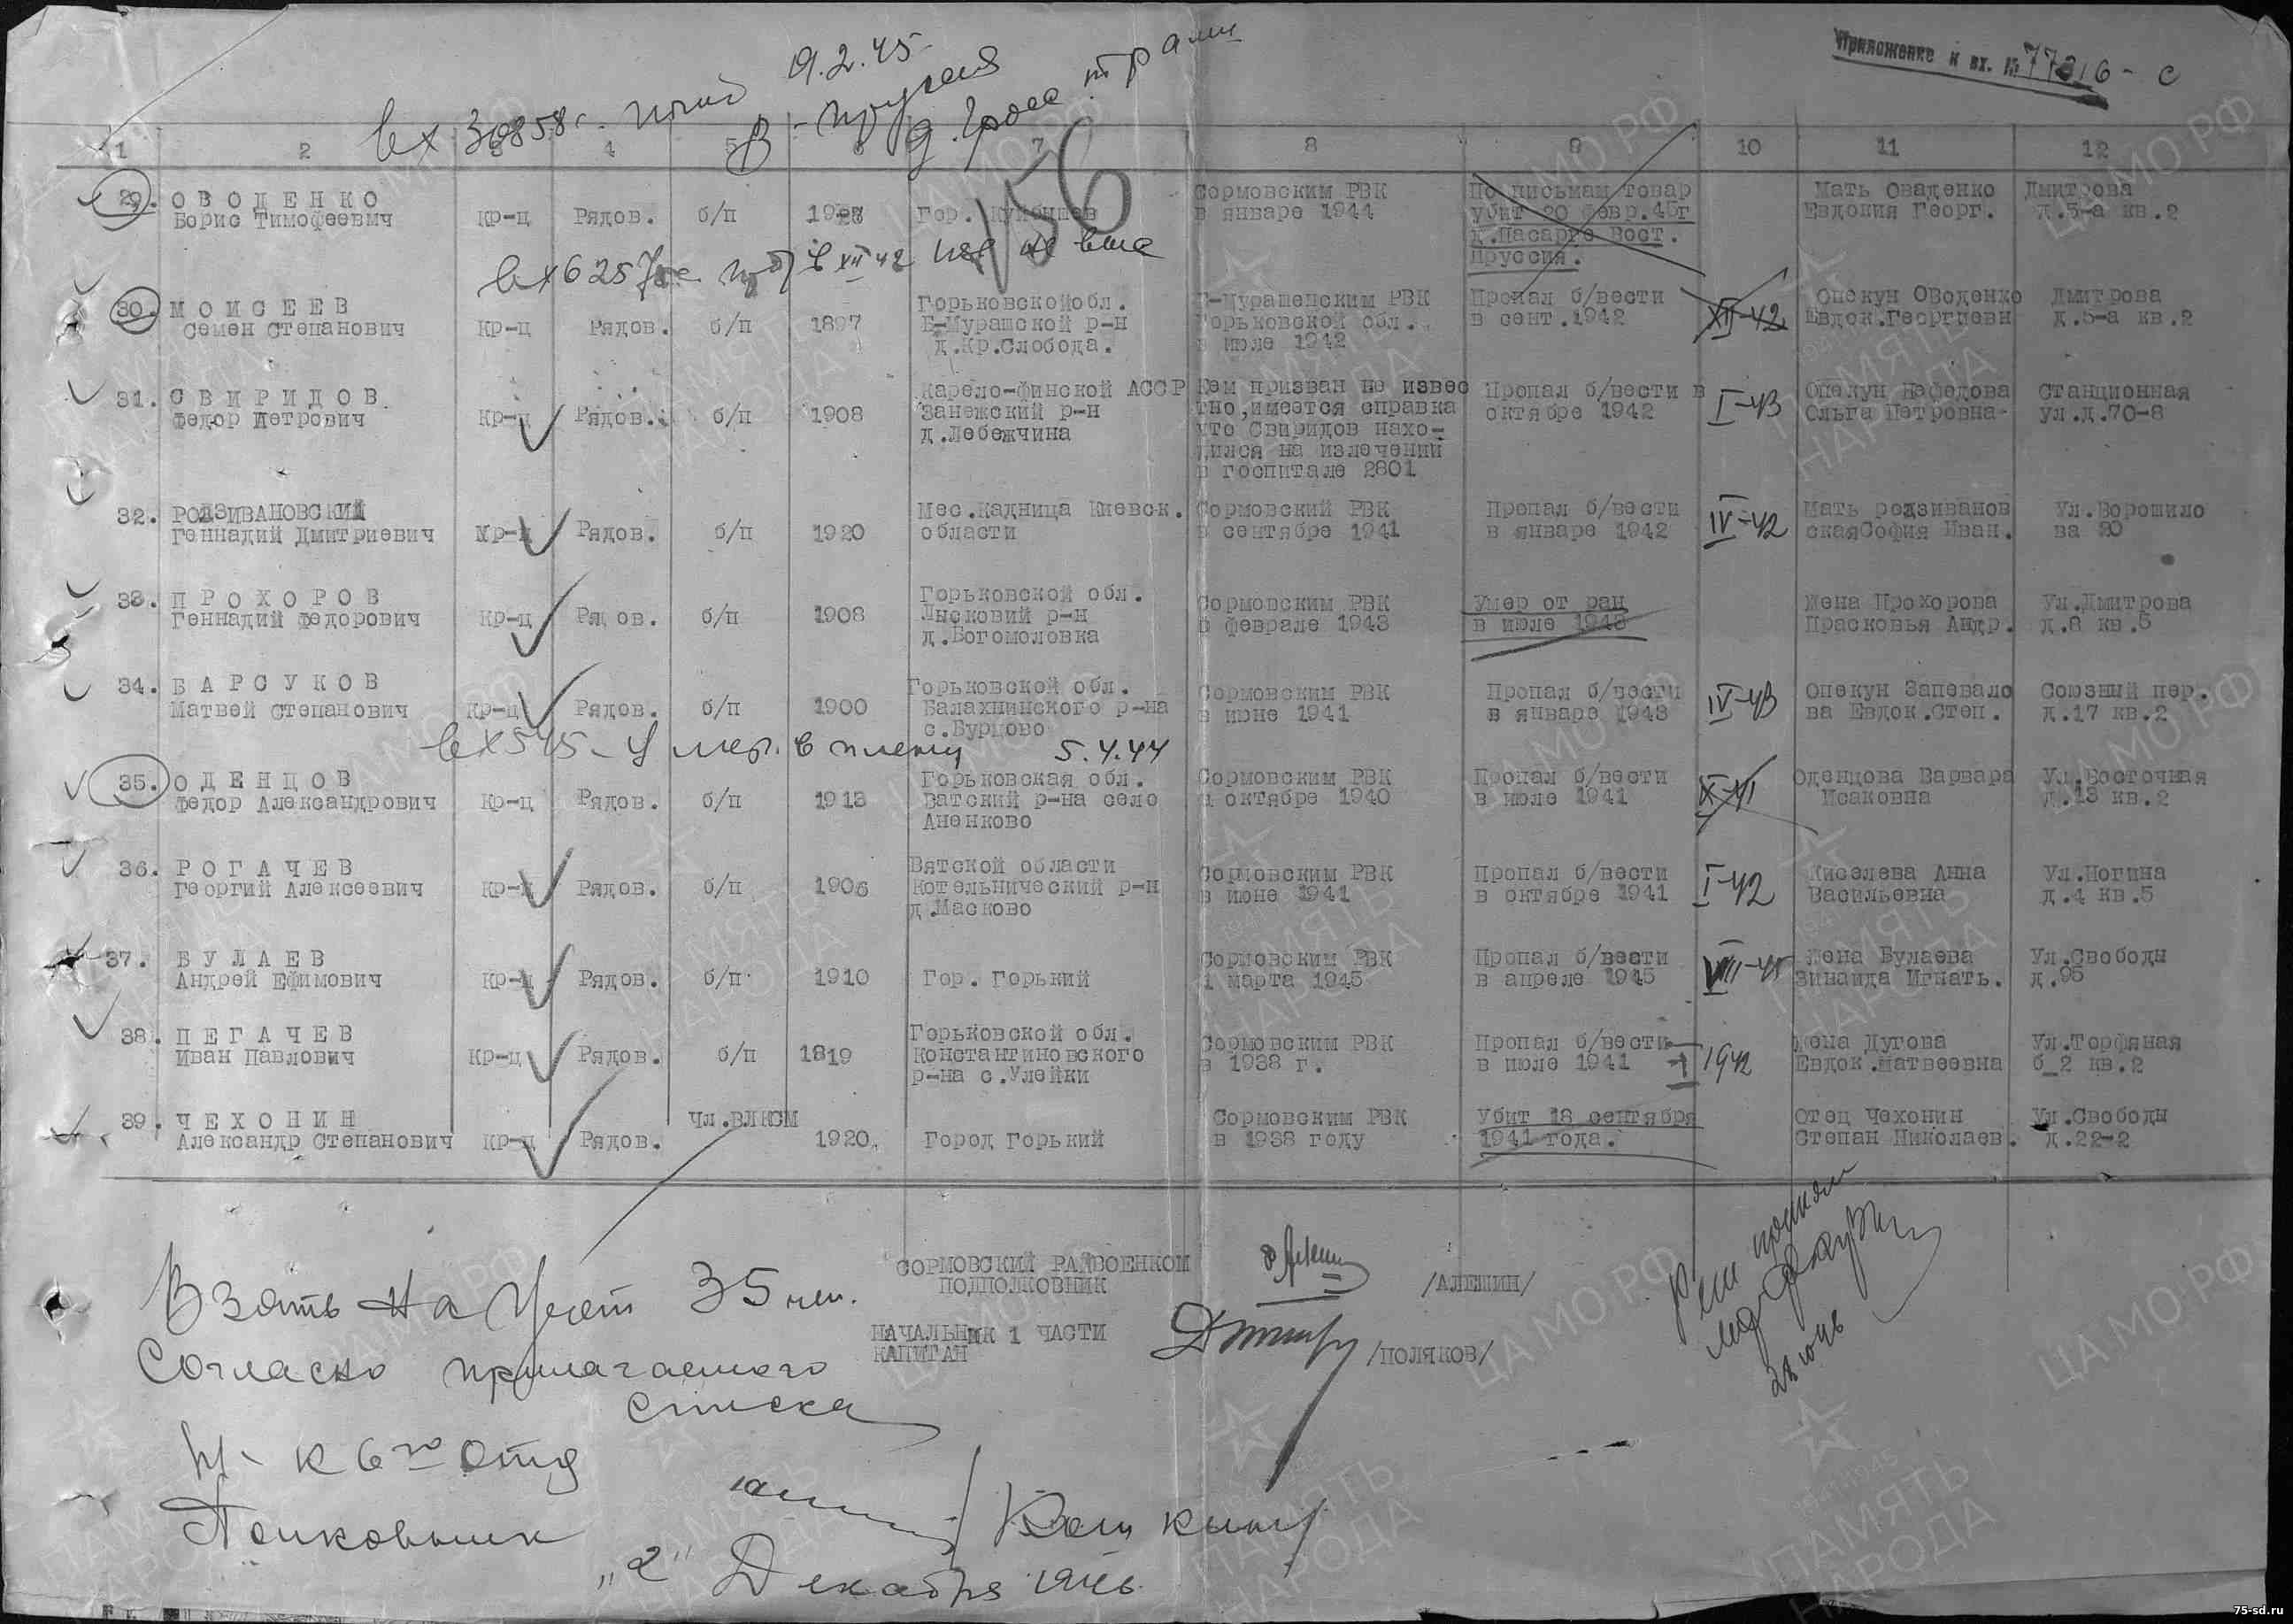 Приложение к вх. № 77316-с
19.2.45
вх 36858с погиб
В-Пруссия
156
1 2 3 4 5 6 7 8 9 10 11 12
29. ОВОДЕНКО Сормовским РВК По письмам товар Мать Оваденко Дмитрова
Борис Тимофеевич Кр-ц Рядов. б/п Гор. Куйбышев в январе 1944 убит 20 февр.45г Евдокия Георг. д.5-а кв.2
д.Пасарге Вост.
Пруссия.
в XII 42
30. МОИСЕЕВ Горьковскойобл. Б-Мурашенским РВК Пропал б/вести XII-42 Опекун Оводенко Дмитрова
Семен Степанович Кр-ц Рядов. б/п 1897 Б-Мурашской р-н Горьковской обл. в сент.1942 Евдок.Георгиевн д.5-а кв.2
д.Кр.Слобода. в июле 1942
31. СВИРИДОВ Карело-финской АССР Кем призван не извес Пропал б/вести в I-43 Опекун Нефедова Станционная
Федор Петрович Кр-ц Рядов. б/п 1908 Занежский р-н тно,имеется справка октябре 1942 Ольга Петровна- ул.д.70-8
д.Лебежчина что Свиридов нахо-
дился на излечении
в госпитале 2801
32. РОДЗИВАНОВСКИЙ Мес.Кадница Киевск. Сормовский РВК Пропал б/вести IV-42 Мать родзиванов Ул.Ворошило
Геннадий Дмитриевич Кр-ц Рядов. б/п 1920 области в сентябре 1941 в январе 1942 скаяСофия Иван. ва 20
33. ПРОХОРОВ Горьковской обл. Сормовским РВК Умер от ран Жена Прохорова Ул.Дмитрова
Геннадий Федорович Кр-ц Рядов. б/п 1908 Лысковий р-н в феврале 1943 в июле 1943 Прасковья Андр. д.8 кв.5
д.Богомоловка
34. БАРСУКОВ Горьковской обл. Сормовским РВК Пропал б/вести IV-43 Опекун Запевало Союзный пер.
Матвей Степанович Кр-ц Рядов. б/п 1900 Балахнинского р-на в июне 1941 в январе 1943 ва Евдок.Степ. д.17 кв.2
с.Бурцово
вх 545-Умер. в плену 5.4.44
35. ОДЕНЦОВ Горьковская обл. Сормовским РВК Пропал б/вести X-41 Оденцова Варвара Ул.Восточная
Федор Александрович Кр-ц Рядов. б/п 1913 Ватский р-на село в октябре 1940 в июле 1941 Исаковна д.13 кв.2
Аненково
36. РОГАЧЕВ Вятской области Сормовским РВК Пропал б/вести I-42 Киселева Анна Ул.Ногина
Георгий Алексеевич Кр-ц Рядов. б/п 1906 Котельнический р-н в июне 1941 в октябре 1941 Васильевна д.4 кв.5
д.Масково
37. БУЛАЕВ Сормовским РВК Пропал б/вести VIII-45 Жена Булаева Ул.Свободы
Андрей Ефимович Кр-ц Рядов. б/п 1910 Гор. Горький 1 марта 1945 в апреле 1945 Зинаида Игнать. д.95
38. ПЕГАЧЕВ Горьковской обл. Сормовским РВК Пропал б/вести I 1942 Жена Дугова Ул.Торфяная
Иван Павлович Кр-ц Рядов. б/п 1819 Константиновского в 1938 г. в июле 1941 Евдок.Матвеевна б_2 кв.2
р-на с.Улейки
39. ЧЕХОНИН Чл.ВЛКСМ Сормовским РВК Убит 18 сентября Отец Чехонин Ул.Свободы
Александр Степанович Кр-ц Рядов. 1920. Город Горький в 1938 году 1941 года. Степан Николаев. д.22-2
СОРМОВСКИЙ РАЙВОЕНКОМ
ПОДПОЛКОВНИК /АЛЕШИН/
НАЧАЛЬНИК 1 ЧАСТИ
КАПИТАН /ПОЛЯКОВ/
Взять на Учет 35 чел.
Согласно прилагаемого
списка
к 6го отд
Полковник
„2" Декабря 1946
ЦА МО РФ
ПАМЯТЬ НАРОДА
1941-1945
75-sd.ru